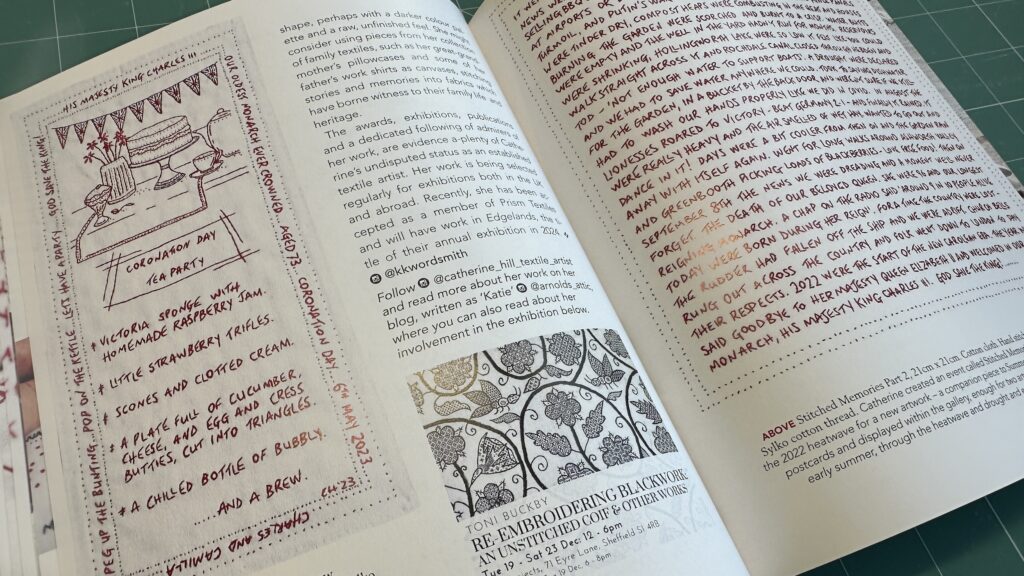 HIS MAJESTY KING CHARLES III.
OUR OLDEST MONARCH EVER CROWNED, AGED 73. CORONATION DAY. 6TH MAY 2023
CHARLES AND CAMILLA
PEG UP THE BUNTING... POP ON THE KETTLE. LETS HAVE A PARTY. GOD SAVE THE KING
CORONATION DAY
TEA PARTY
* VICTORIA SPONGE WITH
HOMEMADE RASPBERRY JAM.
* LITTLE STRAWBERRY TRIFLES.
* SCONES AND CLOTTED CREAM.
* A PLATE FULL OF CUCUMBER,
CHEESE, AND EGG AND CRESS
BUTTIES, CUT INTO TRIANGLES.
* A CHILLED BOTTLE OF BUBBLY.
... AND A BREW.
CH·23
shape, perhaps with a darker colour
ette and a raw, unfinished feel. She
consider using pieces from her collection
of family textiles, such as her great-grand-
mother's pillowcases and some of her
father's work shirts as canvases, stitching
stories and memories into fabrics which
have borne witness to their family life and
heritage.
The awards, exhibitions, publications
and a dedicated following of admirers of
her work, are evidence a plenty of Cathe-
rine's undisputed status as an established
textile artist. Her work is being selected
regularly for exhibitions both in the UK
and abroad. Recently, she has been ac-
cepted as a member of Prism Textiles
and will have work in Edgelands, the ti-
tle of their annual exhibition in 2024
@kkwordsmith
Follow @catherine_hill_textile_artist
and read more about her work on her
blog, written as 'Katie' @arnolds_attic,
where you can also read about her
involvement in the exhibition below.
TONI BUCKBY
RE-EMBROIDERING BLACKWORK
AN UNSTITCHED COIF & OTHER WORKS
Tue 19 - Sat 23 Dec 12 - 6pm
71 Eyre Lane, Sheffield S1 4RB
19 Dec 6 -
NEWS
SELLING BBQ
AT AIRPORTS OR
TURMOIL AND PUTIN'S WAR
WERE TINDER DRY, COMPOST HEAPS WERE COMBUSTING
BURNING. THE GARDENS WERE SCORCHED AND BURNT TO A CRISP. WATER BUTTS
WERE EMPTY AND THE WELL IN THE YARD NEARLY RUN FOR USE. RESERVOIRS
WERE SHRINKING, HOLLINGWORTH LAKE WERE SO LOW IT FELT LIKE YOU COULD
WALK STRAIGHT ACROSS IT AND ROCHDALE CANAL CLOSED THROUGH
TOD - 'NOT ENOUGH WATER TO SUPPORT BOATS'. A DROUGHT WERE DECLARED
AND WE HAD TO SAVE WATER ANYWHERE WE COULD.
FOR THE GARDEN, IN A BUCKET BY THE BACK DOOR, AND WE
HAD TO WASH OUR HANDS PROPERLY LIKE WE DID IN COVID. IN AUGUST THE
LIONESSES ROARED TO VICTORY - BEAT GERMANY 2-1 - AND FINALLY IT RAINED. IT
WERE REALLY HEAVY AND THE AIR SMELLED OF WET HAY. WANTED TO GO OUT AND
DANCE IN IT! DAYS WERE A BIT COOLER FROM THEN ON AND THE GARDEN
AWAY WITH ITSELF AGAIN. WENT FOR LONG WALKS AROUND
AND GREENBOOTH PICKING LOADS OF BLACKBERRIES. LOVE FREE FOOD! THEN ON
SEPTEMBER 8TH THE NEWS WE WERE DREADING AND A MOMENT WE'LL NEVER
FORGET, THE DEATH OF OUR BELOVED QUEEN. SHE WERE 96 AND OUR LONGEST
REIGNING MONARCH. A CHAP ON THE RADIO SAID AROUND 9 IN 10 PEOPLE ALIVE
TODAY WERE BORN DURING HER REIGN. FOR A TIME THE COUNTRY WERE LOST
THE RUDDER HAD FALLEN OFF THE SHIP AND WE WERE ADRIFT. CHURCH BELLS
RUNG OUT ACROSS THE COUNTRY AND FOLK WENT DOWN TO LONDON TO PAY
THEIR RESPECTS. 2022 WERE THE START OF THE NEW CAROLEAN ERA. THE WORLD
SAID GOODBYE TO HER MAJESTY QUEEN ELIZABETH II AND WELCOMED OUR NEW
MONARCH, HIS MAJESTY KING CHARLES III. GOD SAVE THE KING!
ABOVE Stitched Memories Part 2, 21cm x 21cm. Cotton cloth. Hand stitched
Sylko cotton thread. Catherine created an event called Stitched Memories
the 2022 heatwave for a new artwork – a companion piece to Summer
postcards and displayed within the gallery, enough for two
early summer, through the heatwave and drought and